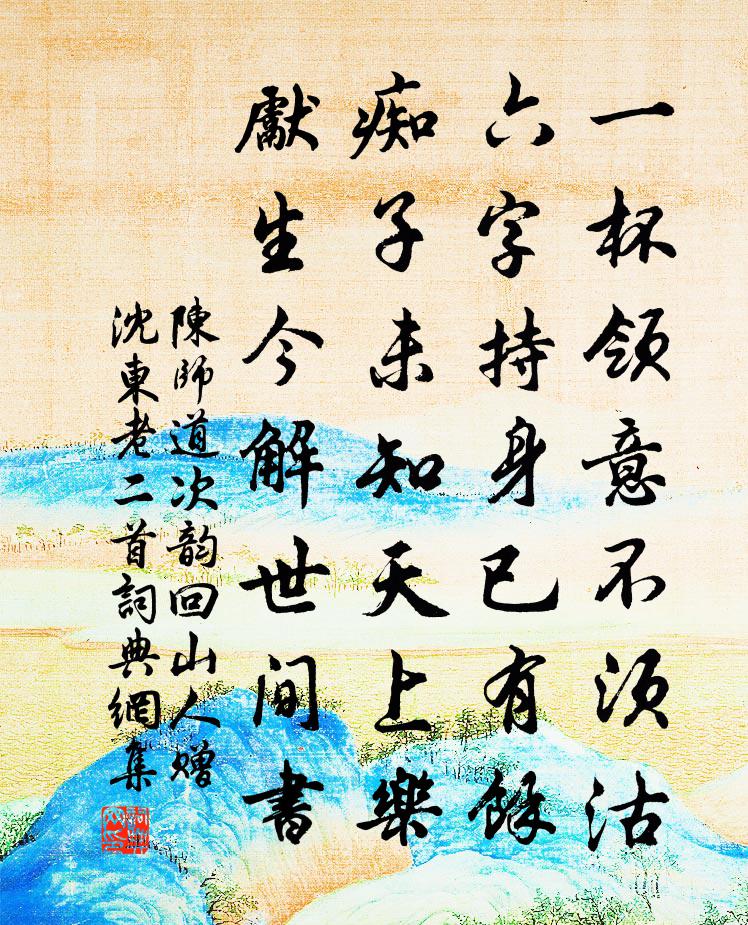 一杯領意不須沽
六字持身已有餘
痴子未知天上樂
獻生今解世間書
陳師道次韵回山人贈
沈東老二首詞典網集